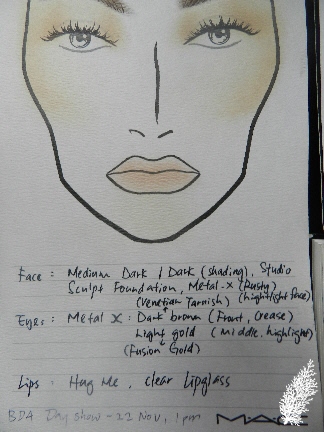 Face : Medium Dark / Dark (shading), Studio
Sculpt Foundation, Metal-X (Rusty)
(Venetian Tarnish) (highlight face)
Eyes : Metal X : Dark brown (Front, Crease)
Light gold (Middle, highlight)
(Fusion Gold)
Lips : Hug Me, clear Lipglass
BDA Day show - 22 Nov, 1pm MAC